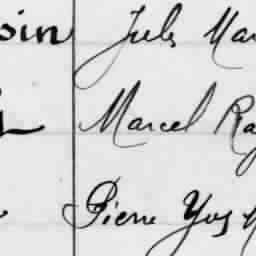 oin Jules Mar
Marcel Ra
Pierre Yves M